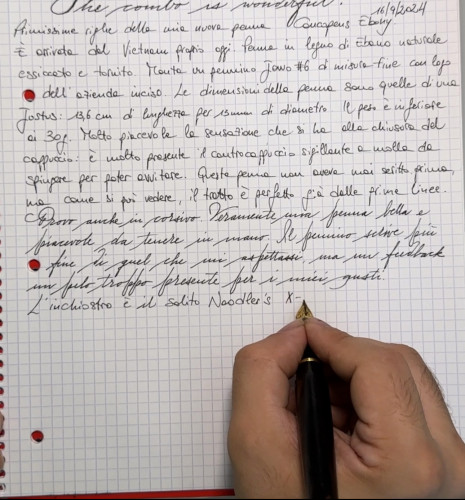 The combo is wonderful.
16/9/2024
Primissime righe della mia nuova penna Concapens Ebony
È arrivata dal Vietnam proprio oggi. Penna in legno di Ebano naturale
essiccato e tornito. Monta un pennino Jowo #6 di misura fine con logo
dell'azienda inciso. Le dimensioni della penna sono quelle di una
Justus: 13,6 cm di lunghezza per 15mm di diametro. Il peso è inferiore
ai 30g. Molto piacevole la sensazione che si ha alla chiusura del
cappuccio: è molto presente il controcappuccio sigillante a molla da
spingere per poter avvitare. Questa penna non aveva mai scritto prima,
ma, come si può vedere, il tratto è perfetto già dalle prime linee.
Provo anche in corsivo. Veramente una penna bella e
piacevole da tenere in mano. Il pennino scrive più
fine di quel che mi aspettassi, ma un feedback
un pelo troppo presente per i miei gusti.
L'inchiostro è il solito Noodler's X-